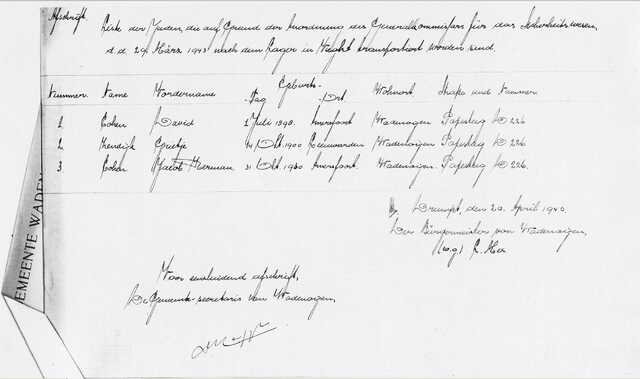 Afschrift. Liste der Juden, die auf Grund der Anordnung des Generalkommissars für das Sicherheitswesen,
d.d. 29 März 1943 nach dem Lager in Vught transportiert worden sind.
Nummer. Name Vorname Geburts- Tag Ort Wohnort Straße und Nummer
1 Cohen David 2 Juli 1898. Amersfoort Wadenoijen Papesteeg D 226.
2 Hendrijk Grietje Okt. 1900 Leeuwarden Wadenoijen Papesteeg D 226.
3 Cohen Jacob Herman 31 Okt. 1930 Amersfoort. Wadenoijen. Papesteeg D 226.
Drumpt, den 20. April 1943.
Der Bürgermeister von Wadenoijen,
(w.g)
Voor eensluidend afschrift,
De Gemeente-secretaris van Wadenoijen,
EMEENTE WADEN